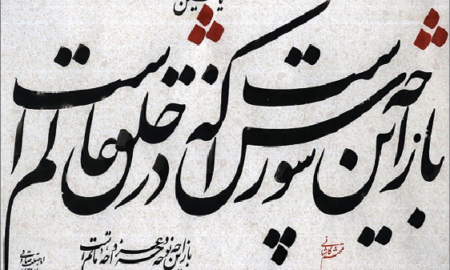 یا حسین
باز این چه شورش است که در خلق عالم است
باز این چه نوحه و چه عزا و چه ماتم است
محتشم کاشانی